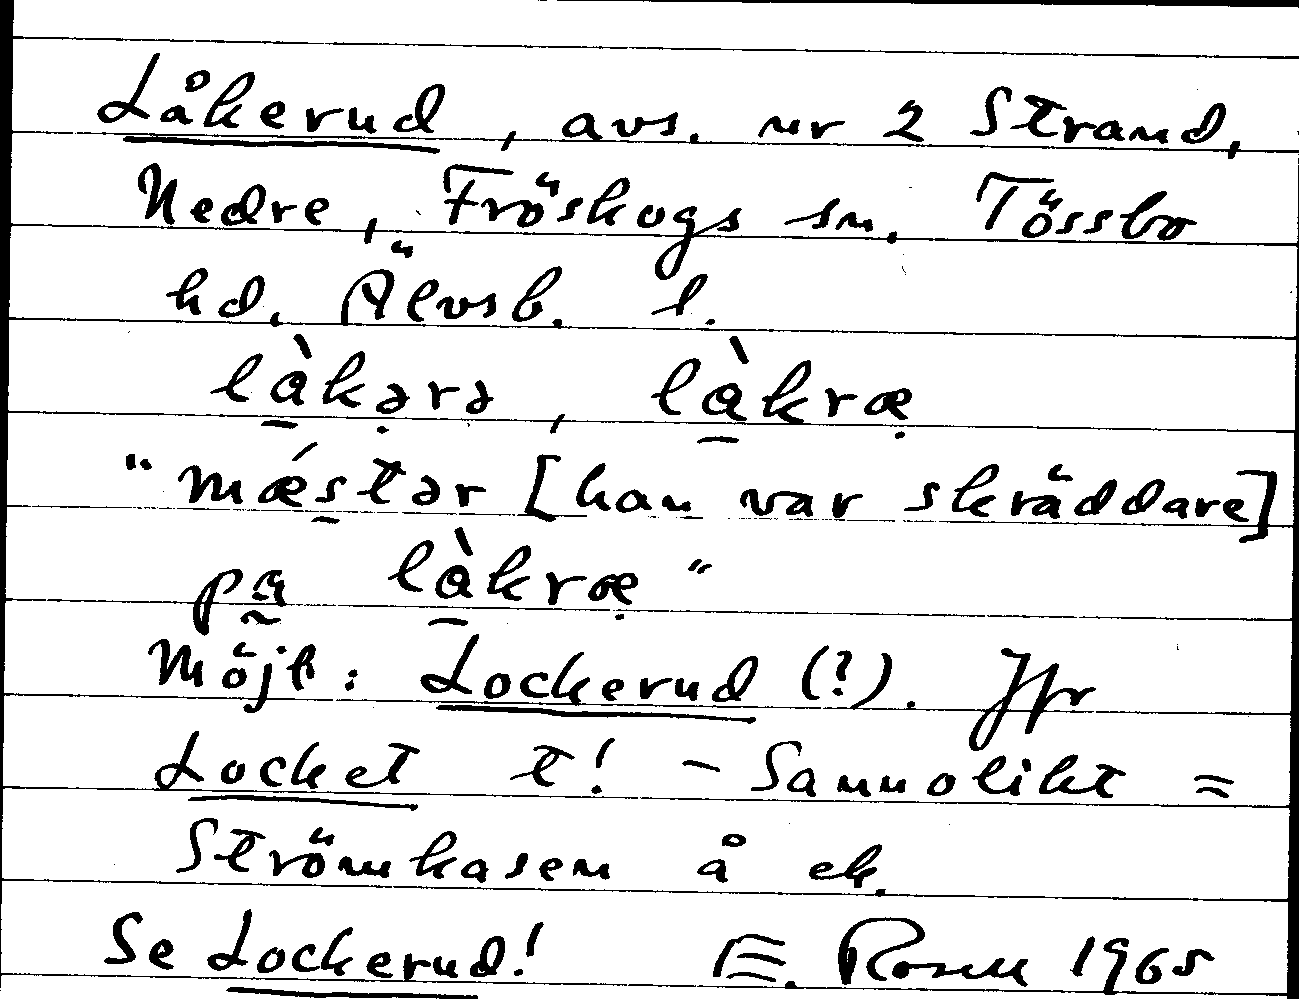 Låkerud, avs. nr 2 Strand,
Nedre, Fröskogs sn. Tössbo
hd. Älvsb. l.
là̠kə̣rə, là̠kræ̣
"mǽs̠tər [han var skräddare]
pa̰ là̠kræ̣"
Möjl: Lockerud (?). Jfr
Locket t! - Sannolikt =
Strömkasen å ek.
Se Lockerud! E. Rosell 1965